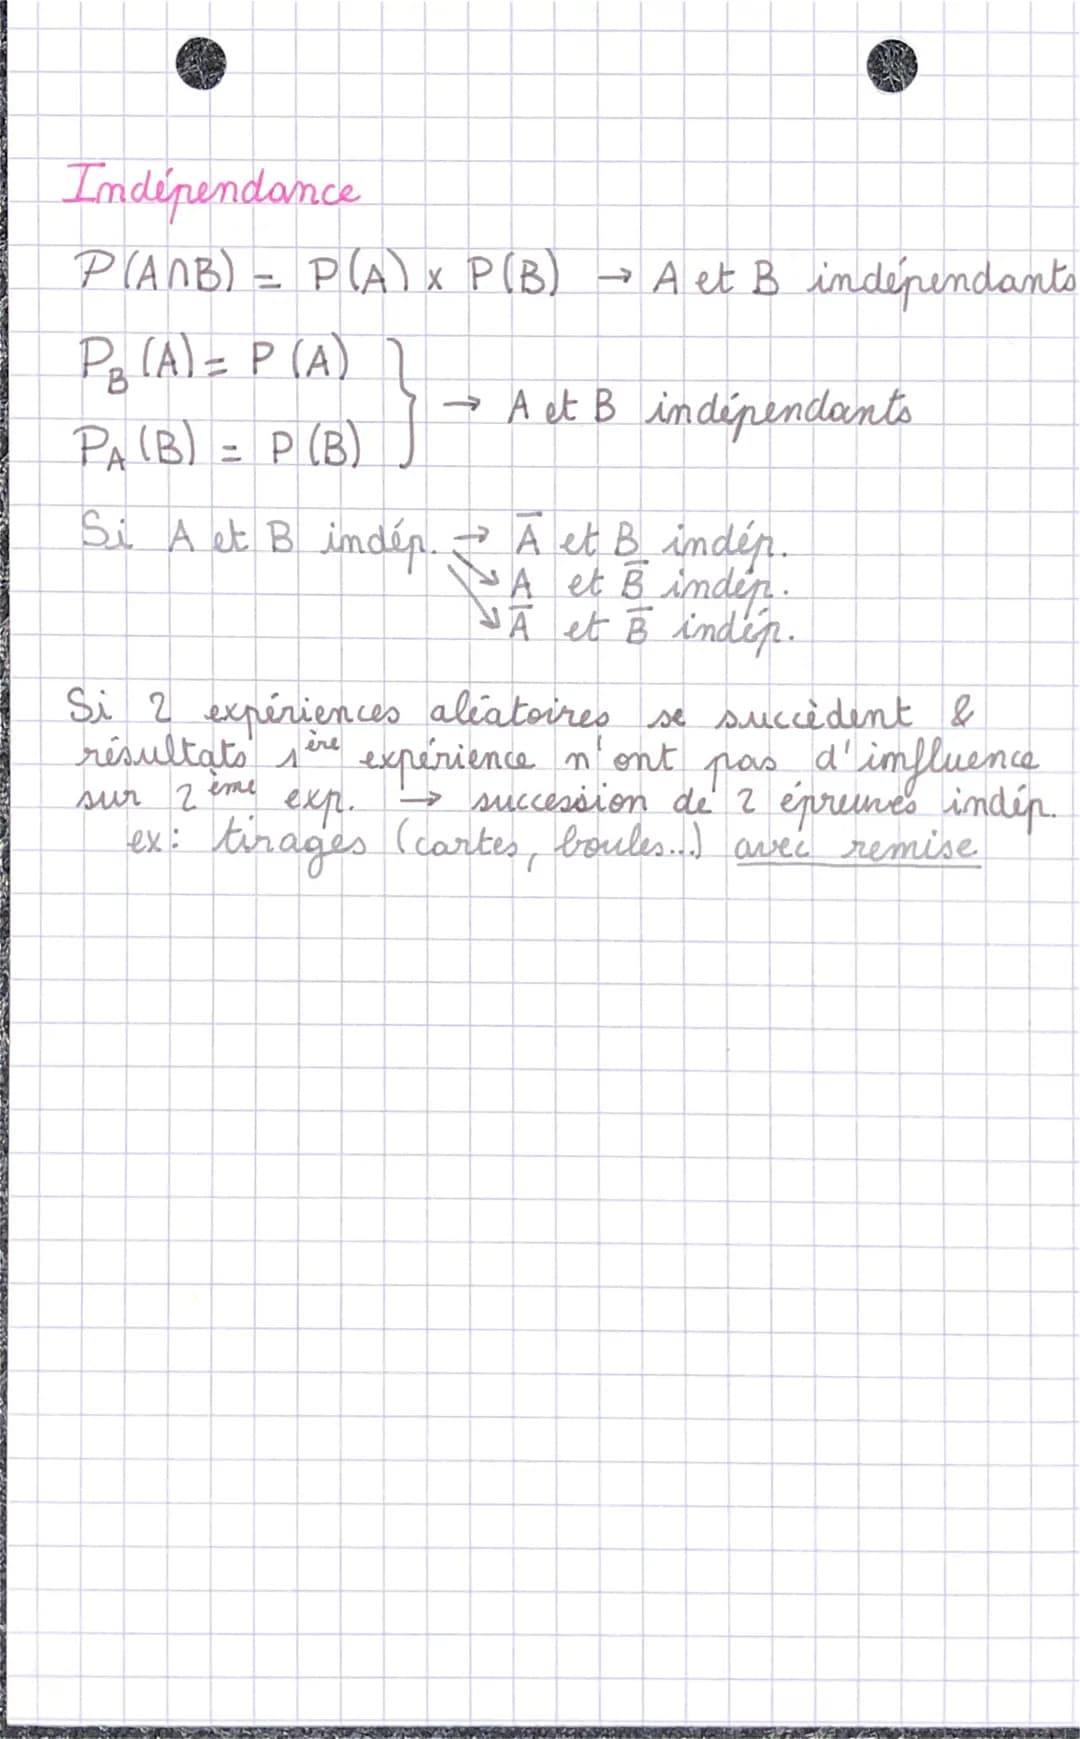 Indépendance
P(A∩B) = P(A) x P(B) → A et B indépendants
P_B (A) = P (A)
→ A et B indépendants
P_A (B) = P (B)
Si A et B indép. → A̅ et B indép.
A et B̅ indép.
A̅ et B̅ indép.
Si 2 expériences aléatoires se succèdent &
résultats 1ère expérience n'ont pas d'influence
sur 2ème exp. ↳ succession de 2 épreuves indép.
ex: tirages (cartes, boules...) avec remise